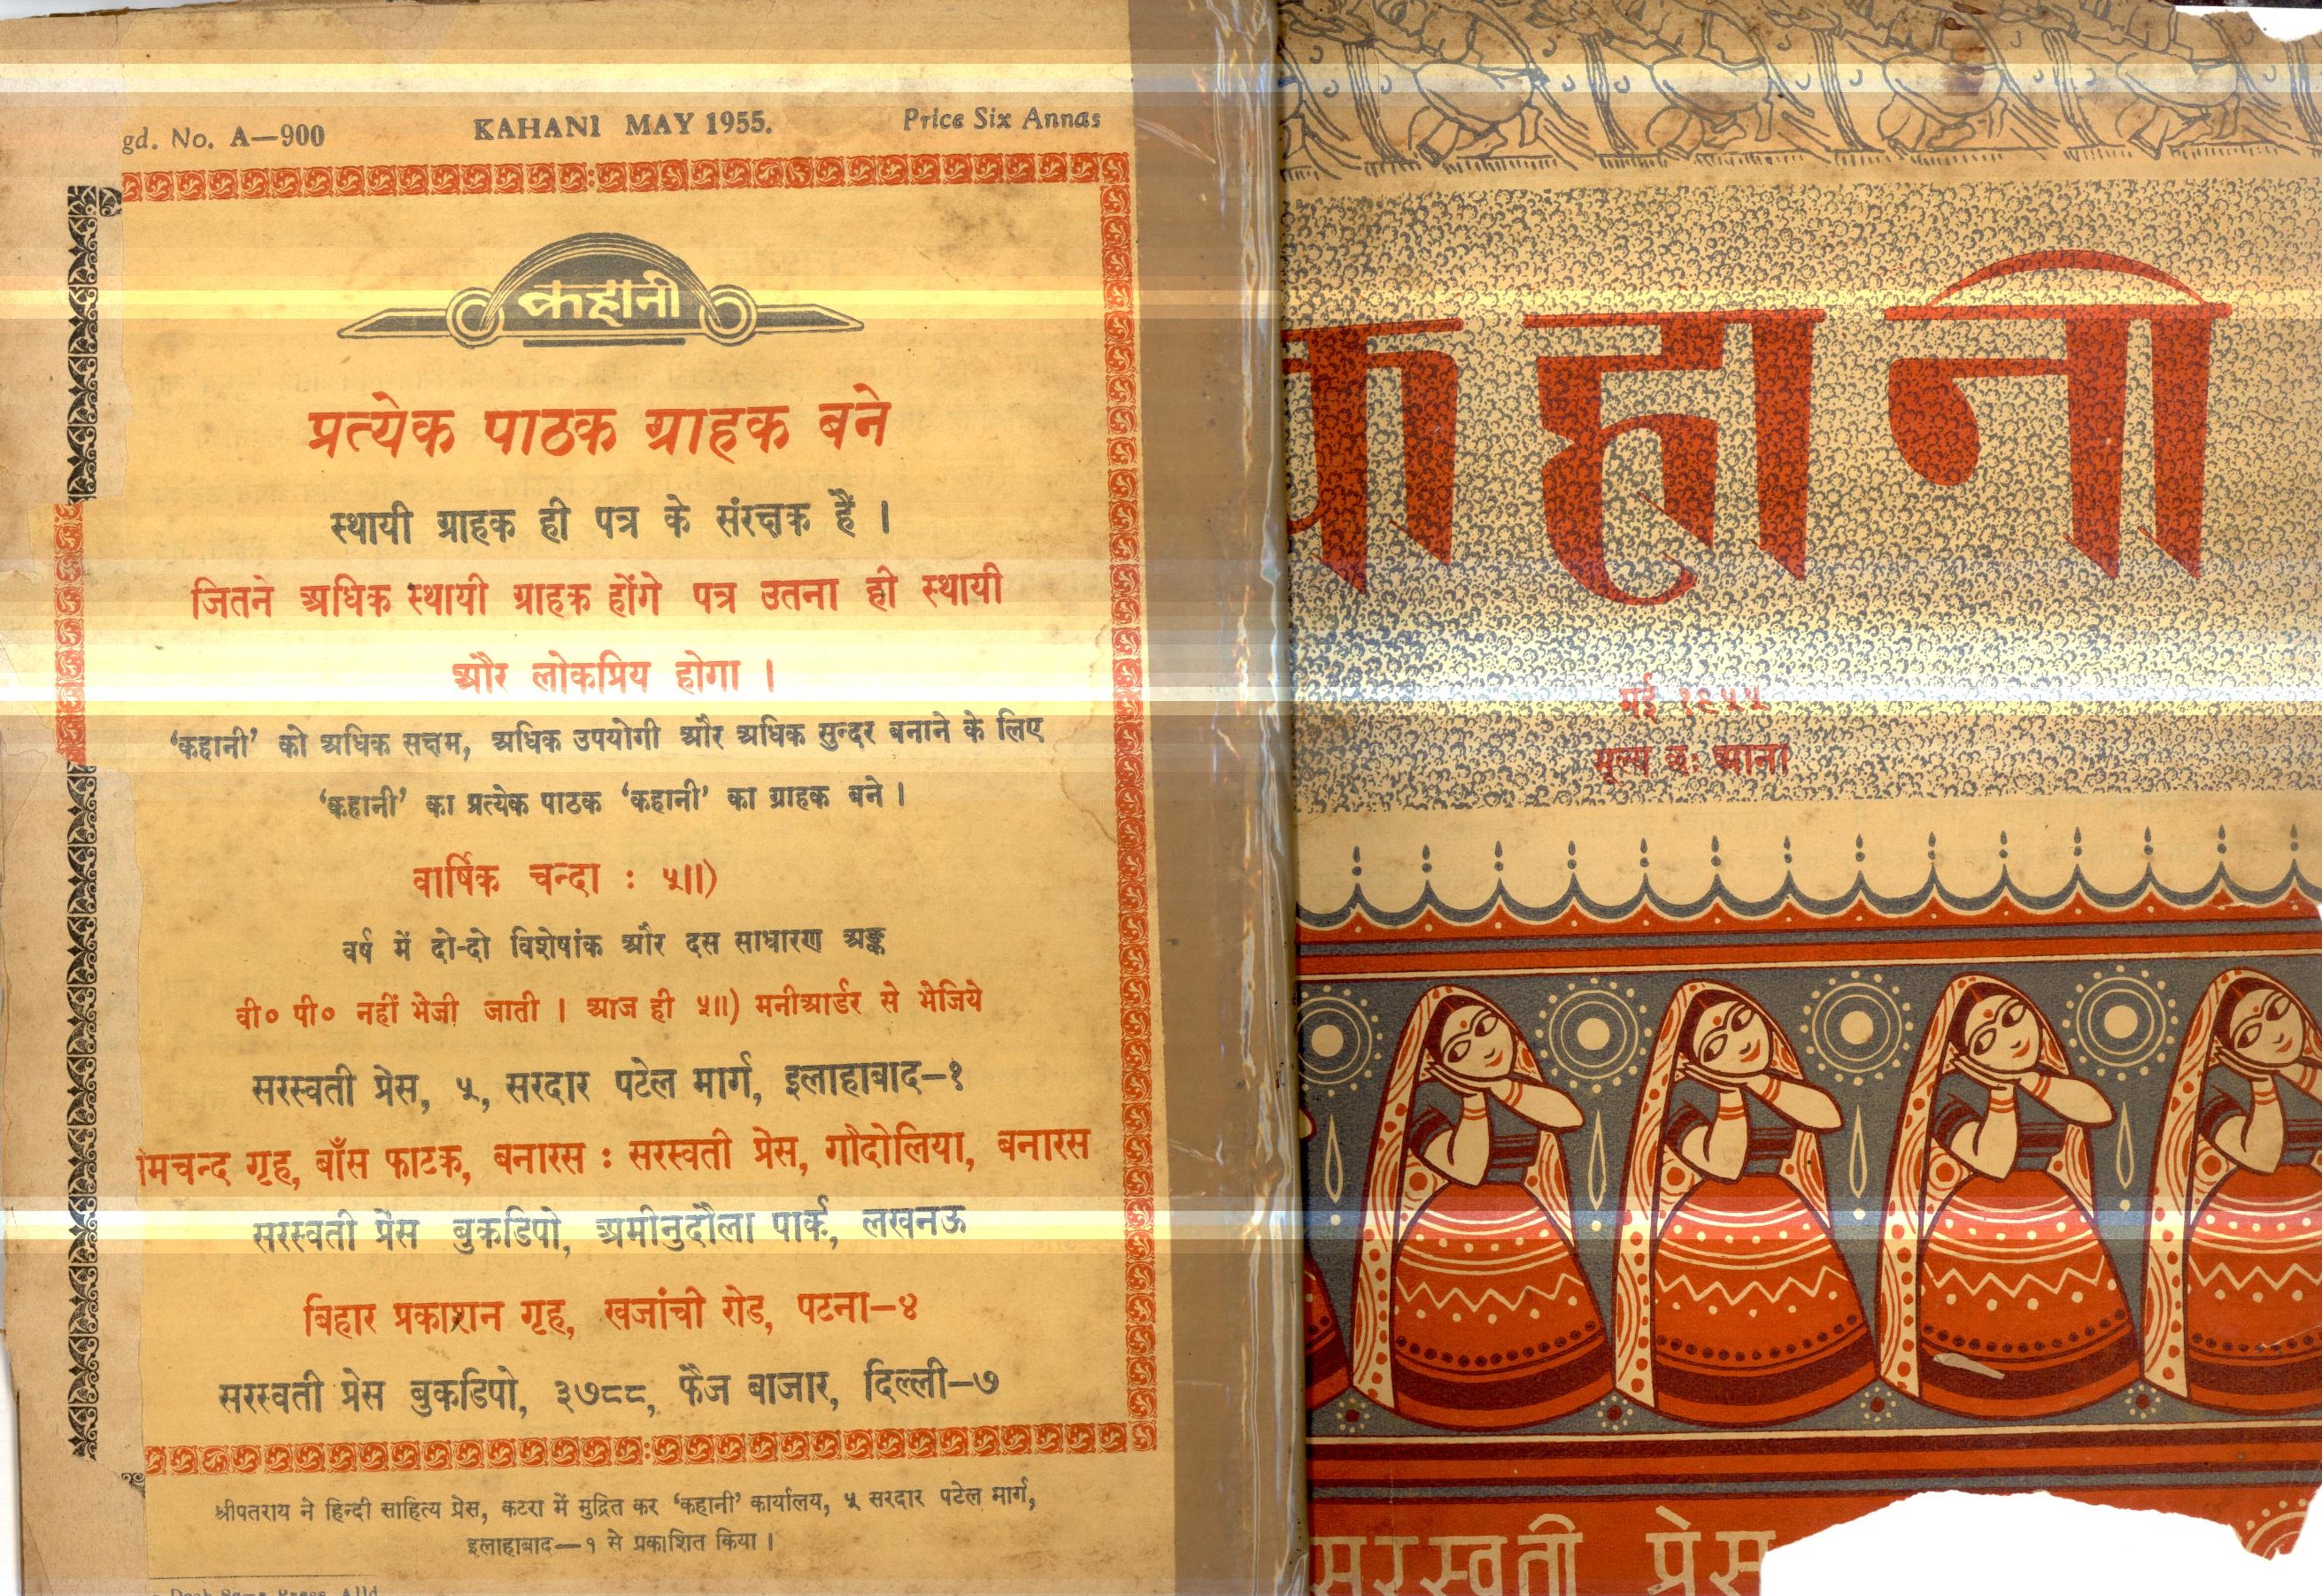 gd. No. A—900
KAHANI MAY 1955.
Price Six Annas
कहानी
प्रत्येक पाठक ग्राहक बने
स्थायी ग्राहक ही पत्र के संरक्षक हैं ।
जितने अधिक स्थायी ग्राहक होंगे पत्र उतना ही स्थायी
और लोकप्रिय होगा ।
‘कहानी’ को अधिक सक्षम, अधिक उपयोगी और अधिक सुन्दर बनाने के लिए
‘कहानी’ का प्रत्येक पाठक ‘कहानी’ का ग्राहक बने ।
वार्षिक चन्दा : ५॥)
वर्ष में दो-दो विशेषांक और दस साधारण अङ्क
वी० पी० नहीं भेजी जाती । आज ही ५॥) मनीआर्डर से भेजिये
सरस्वती प्रेस, ५, सरदार पटेल मार्ग, इलाहाबाद–१
ेमचन्द गृह, बाँस फाटक, बनारस : सरस्वती प्रेस, गौदोलिया, बनारस
सरस्वती प्रेस बुकडिपो, अमीनुदौला पार्क, लखनऊ
बिहार प्रकाशन गृह, खजांची रोड, पटना–४
सरस्वती प्रेस बुकडिपो, ३७८८, फैज बाजार, दिल्ली–७
श्रीपतराय ने हिन्दी साहित्य प्रेस, कटरा में मुद्रित कर ‘कहानी’ कार्यालय, ५ सरदार पटेल मार्ग,
इलाहाबाद—१ से प्रकाशित किया ।
Press, Alld.
कहानी
मई १९५५
मूल्य छः आना
सरस्वती प्रेस